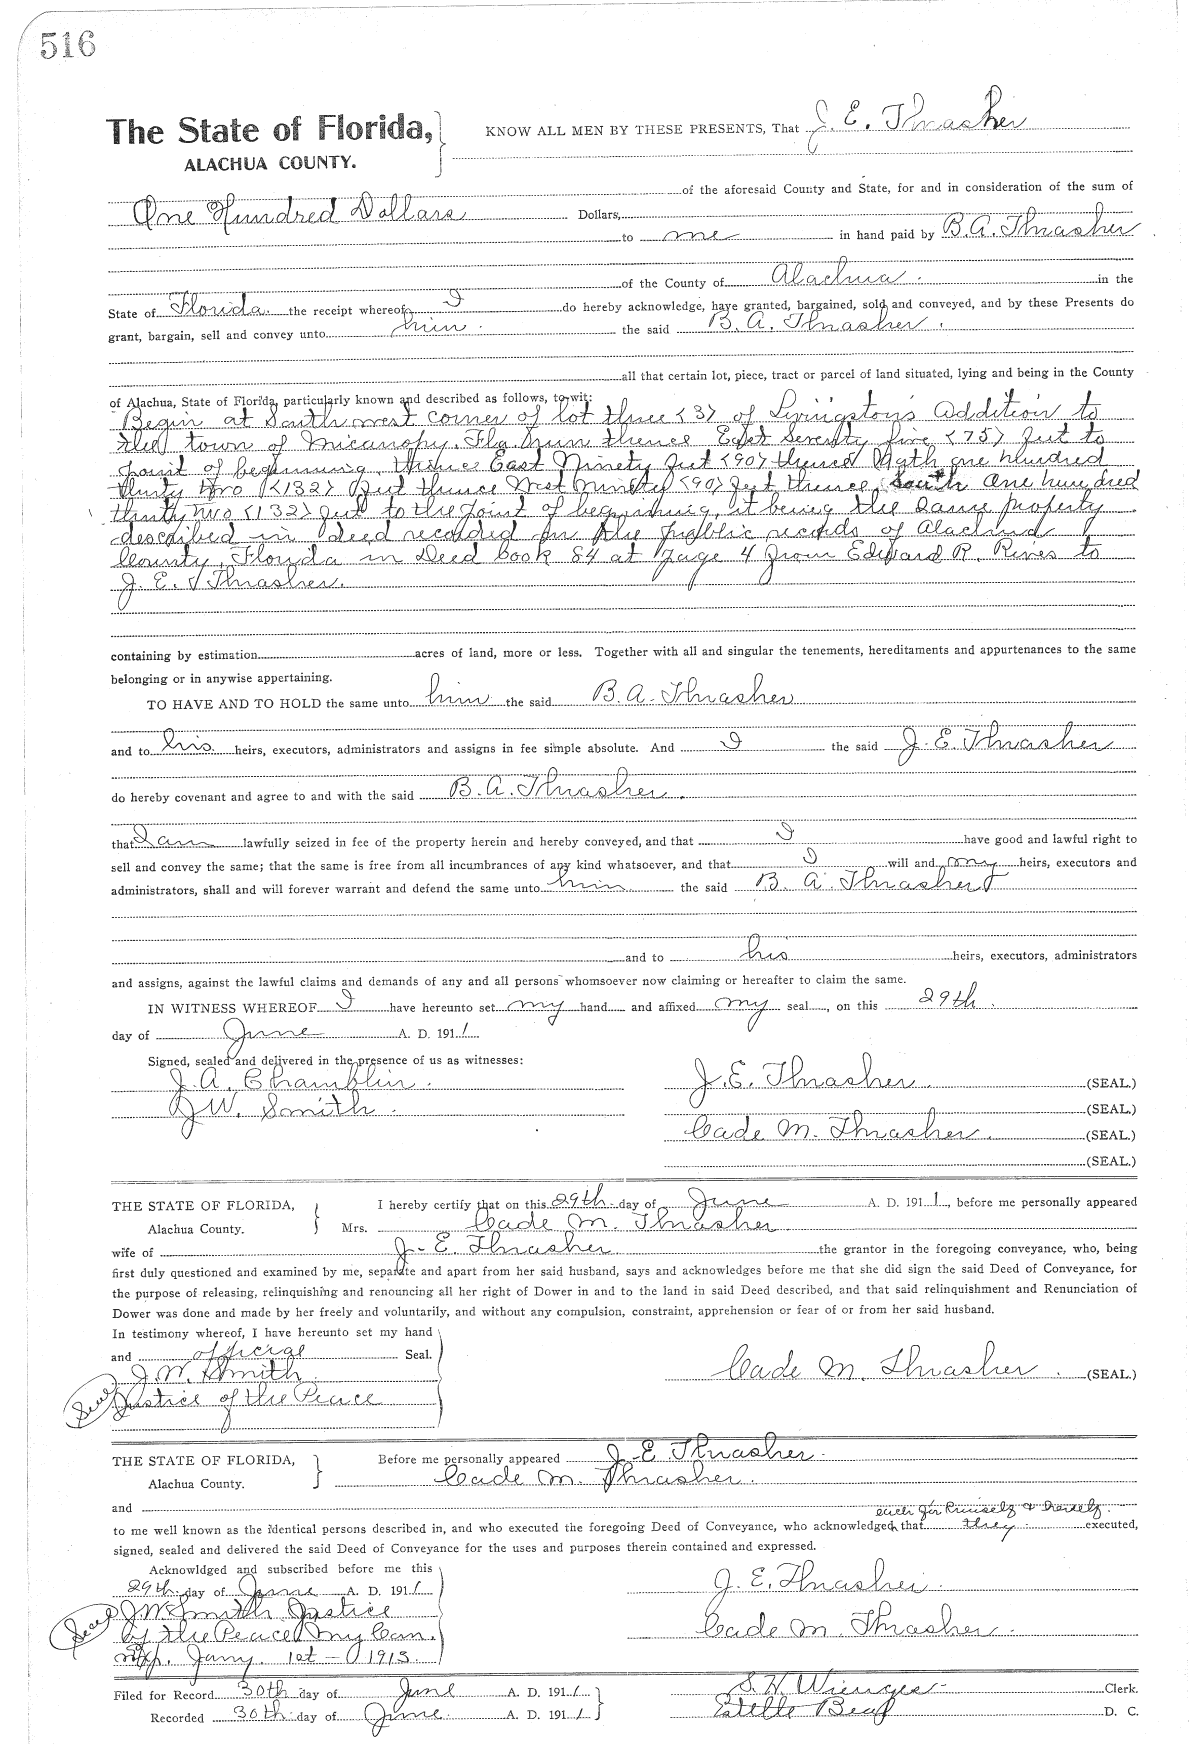 516
The State of Florida, KNOW ALL MEN BY THESE PRESENTS, That J. E. Thrasher
ALACHUA COUNTY.
of the aforesaid County and State, for and in consideration of the sum of
One Hundred Dollars Dollars,
to me in hand paid by B. A. Thrasher
of the County of Alachua. in the
State of Florida. the receipt whereof I do hereby acknowledge, have granted, bargained, sold and conveyed, and by these Presents do
grant, bargain, sell and convey unto him. the said B. A. Thrasher.
all that certain lot, piece, tract or parcel of land situated, lying and being in the County
of Alachua, State of Florida, particularly known and described as follows, to wit:
Begin at Southwest corner of lot three (3) of Livingston's Addition to
the town of Micanopy. Fla. run thence East Seventy five (75) feet to
point of beginning, thence East Ninety feet (90) thence North one hundred
thirty two (132) feet thence West ninety (90) feet thence South one hundred
thirty two (132) feet to the point of beginning, it being the same property
described in deed recorded in the public records of Alachua
County, Florida in Deed book 84 at page 4 from Edward R. Rives to
J. E. Thrasher.
containing by estimation acres of land, more or less. Together with all and singular the tenements, hereditaments and appurtenances to the same
belonging or in anywise appertaining.
TO HAVE AND TO HOLD the same unto him the said B. A. Thrasher
and to his heirs, executors, administrators and assigns in fee simple absolute. And I the said J. E. Thrasher
do hereby covenant and agree to and with the said B. A. Thrasher.
that I am lawfully seized in fee of the property herein and hereby conveyed, and that I have good and lawful right to
sell and convey the same; that the same is free from all incumbrances of any kind whatsoever, and that I will and my heirs, executors and
administrators, shall and will forever warrant and defend the same unto him the said B. A. Thrasher
and to his heirs, executors, administrators
and assigns, against the lawful claims and demands of any and all persons whomsoever now claiming or hereafter to claim the same.
IN WITNESS WHEREOF I have hereunto set my hand and affixed my seal, on this 29th.
day of June A. D. 1911
Signed, sealed and delivered in the presence of us as witnesses:
J. A. Chamblin. J. E. Thrasher. (SEAL.)
J W. Smith. (SEAL.)
Cade M. Thrasher. (SEAL.)
(SEAL.)
THE STATE OF FLORIDA, I hereby certify that on this 29th day of June A. D. 1911, before me personally appeared
Alachua County. Mrs. Cade M. Thrasher
wife of J. E. Thrasher the grantor in the foregoing conveyance, who, being
first duly questioned and examined by me, separate and apart from her said husband, says and acknowledges before me that she did sign the said Deed of Conveyance, for
the purpose of releasing, relinquishing and renouncing all her right of Dower in and to the land in said Deed described, and that said relinquishment and Renunciation of
Dower was done and made by her freely and voluntarily, and without any compulsion, constraint, apprehension or fear of or from her said husband.
In testimony whereof, I have hereunto set my hand
and official Seal.
J. W. Smith Cade M. Thrasher. (SEAL.)
Seal Justice of the Peace
THE STATE OF FLORIDA, Before me personally appeared J. E Thrasher.
Alachua County. Cade M. Thrasher.
and
each for himself & herself.
to me well known as the identical persons described in, and who executed the foregoing Deed of Conveyance, who acknowledged that they executed,
signed, sealed and delivered the said Deed of Conveyance for the uses and purposes therein contained and expressed.
Acknowldged and subscribed before me this
29th. day of June A. D. 1911 J. E. Thrasher.
Seal J W Smith Justice
of the Peace My Com. Cade M Thrasher.
Exp. Jany. 1st - 1913.
Filed for Record 30th day of June A. D. 1911 S. H. Wienges Clerk.
Recorded 30th day of June. A. D. 1911 Estelle D. C.